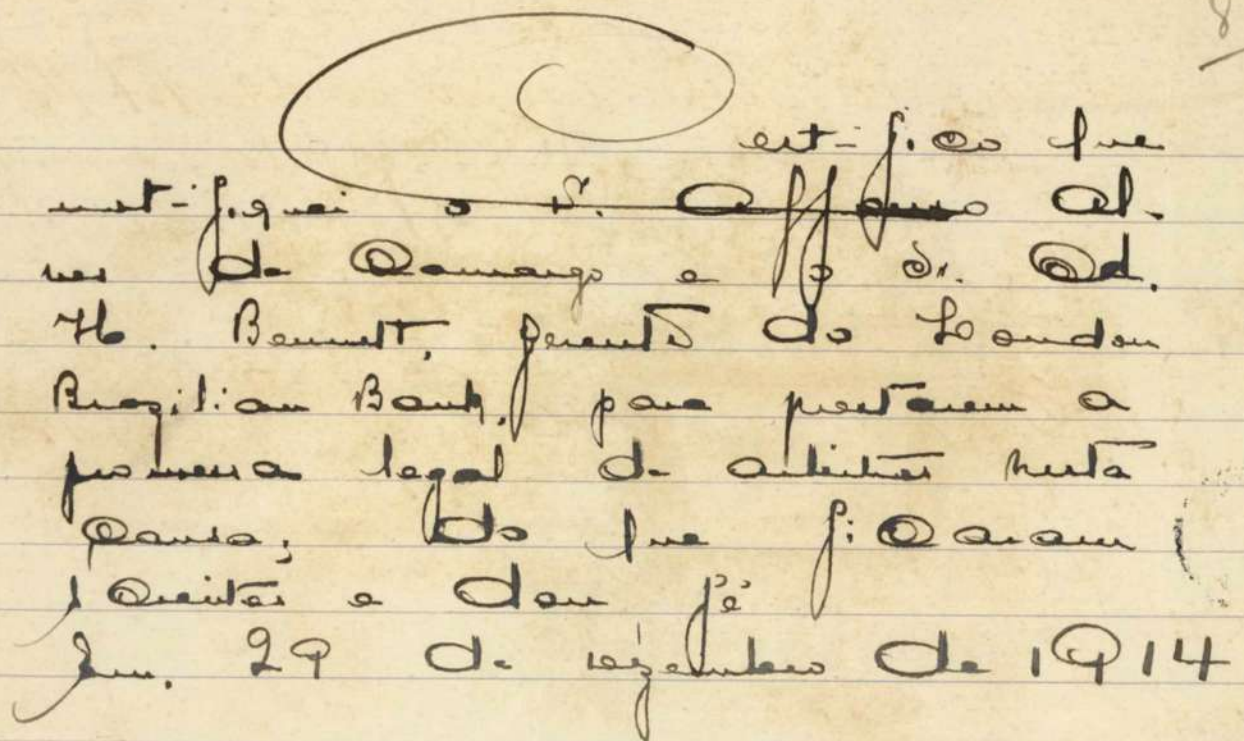 8
Certifico que
notifiquei o Dr. Affonso Al-
ves de Camargo e o Sr. Ed.
H. Bennett, gerente do London
Brazilian Bank, para prestarem a
promessa legal de arbitros nesta
Causa; do que ficaram
scientes e dou fé
Em, 29 de dezembro de 1914